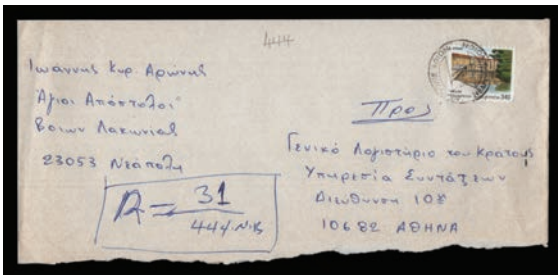 444
Ιωάννης Κυρ. Αρώνης
Άγιοι Απόστολοι
Βοιών Λακωνίας
23053 Νεάπολη
R = 31
444 Ν.Β
Προς
Γενικό Λογιστήριο του Κράτους
Υπηρεσία Συντάξεων
Διεύθυνση 10η
10682 ΑΘΗΝΑ